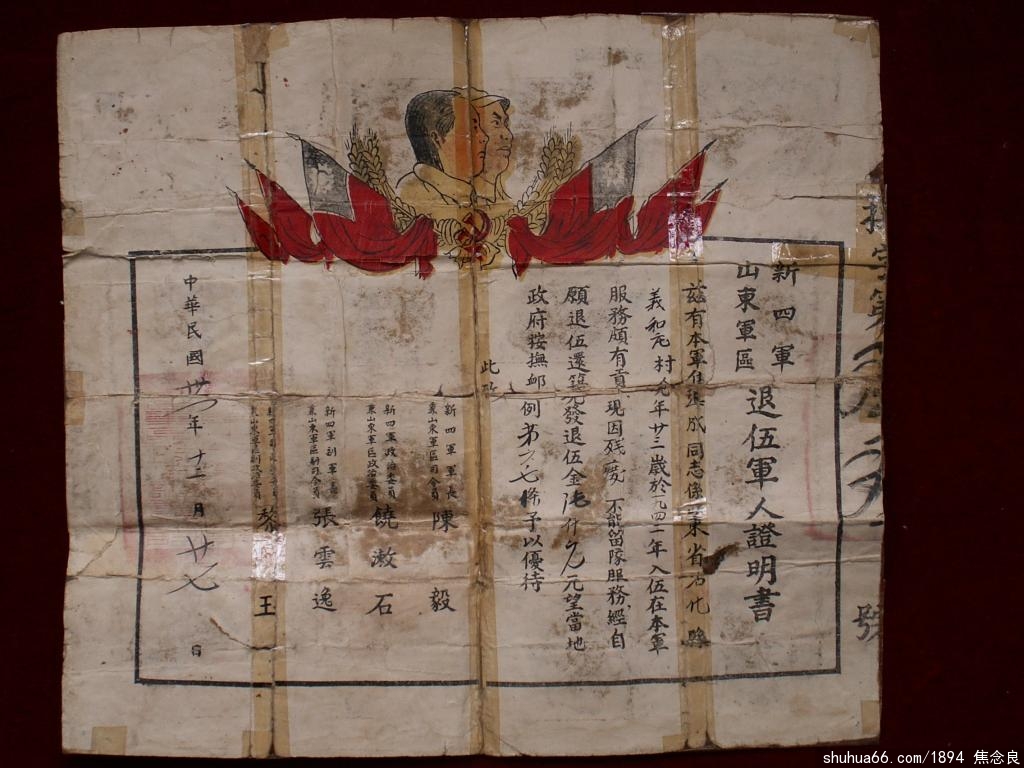 字第
號
新四軍
山東軍區
退伍軍人證明書
茲有本軍 成同志係 東省沾化縣
義和 村 年廿三歲於一九四二年入伍在本軍
服務頗有 現因残 不能留隊服務經自
願退伍還 發退伍金 元望當地
政府按撫卹 例第 七條予以優待
此
新四軍軍長
山東軍區司令員
陳毅
新四軍政治委員
山東軍區政治委員
饒漱石
新四軍副軍長
山東軍區副司令員
張雲逸
黎玉
中華民國 年十二月廿七日
shuhua66.com/1894 焦念良